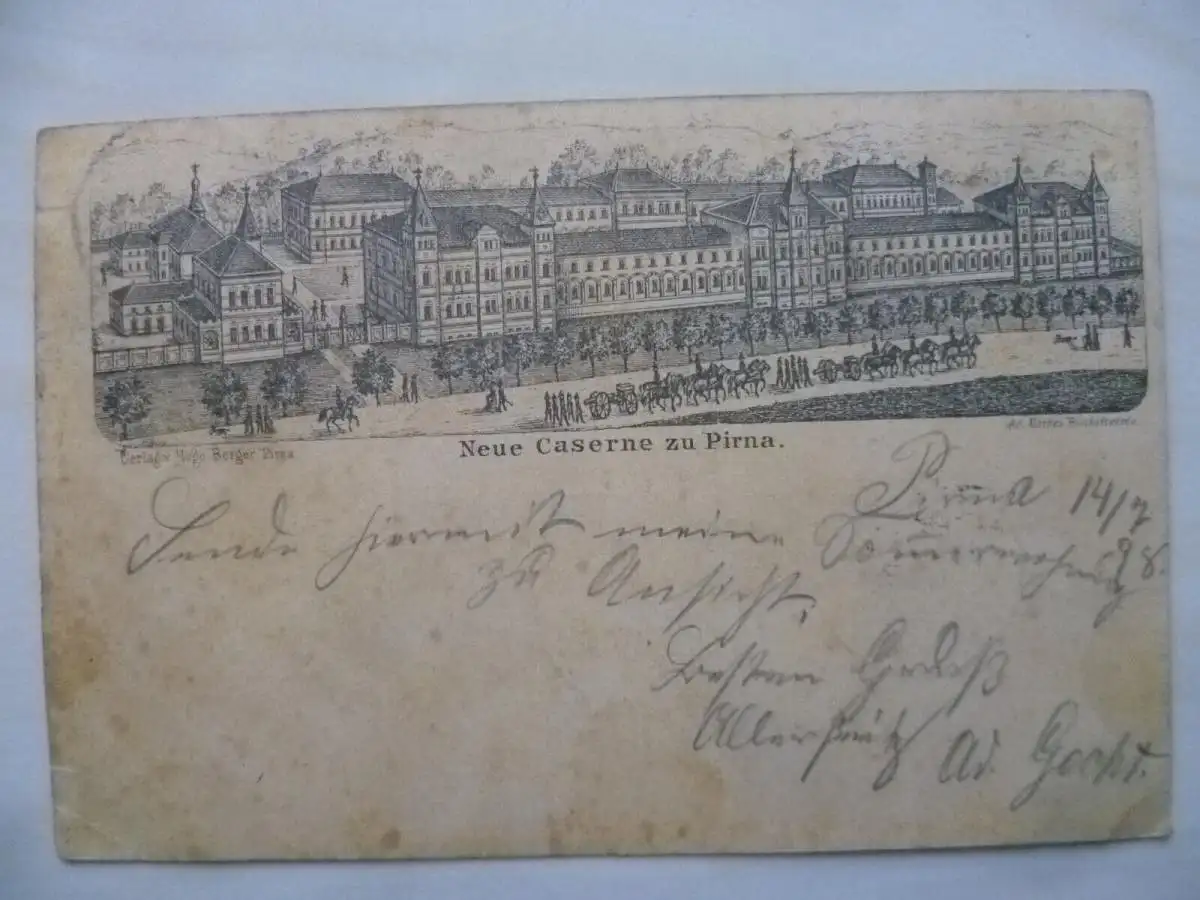 Verlag v. Hugo Berger Pirna
Neue Caserne zu Pirna.
Pirna 14/7
98.
Sende hiermit meine Sommerwohnung
zu Ansicht.
Besten Gruß
Allerseits Ad.